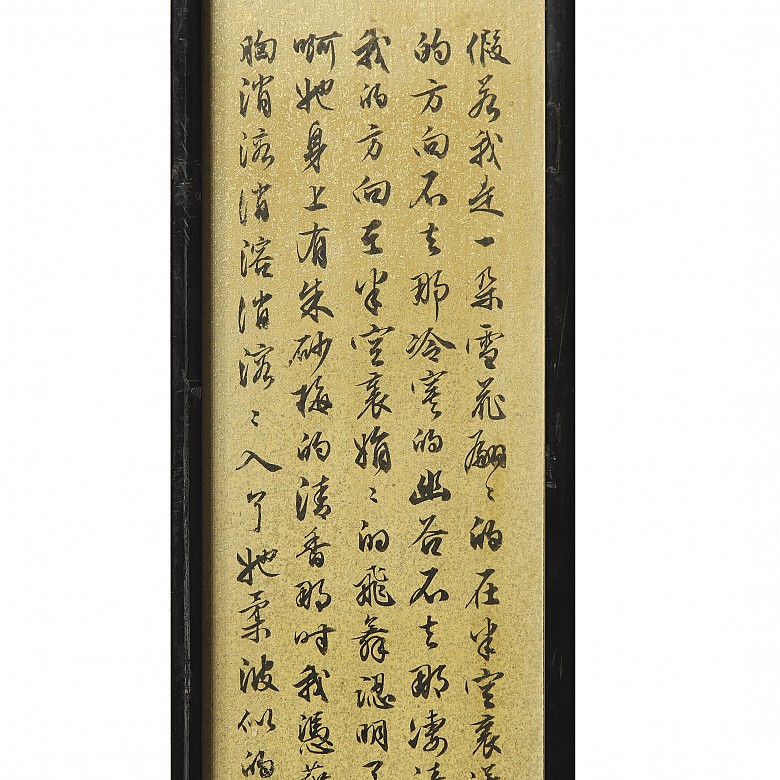 假若我是一朵雪花翩々的在半空裏
的方向不去那冷寞的幽谷不去那凄
我的方向在半空裏娟々的飛舞認明了
啊她身上有朱砂梅的清香那時我憑
胸消溶消溶消溶々入了她柔波似的